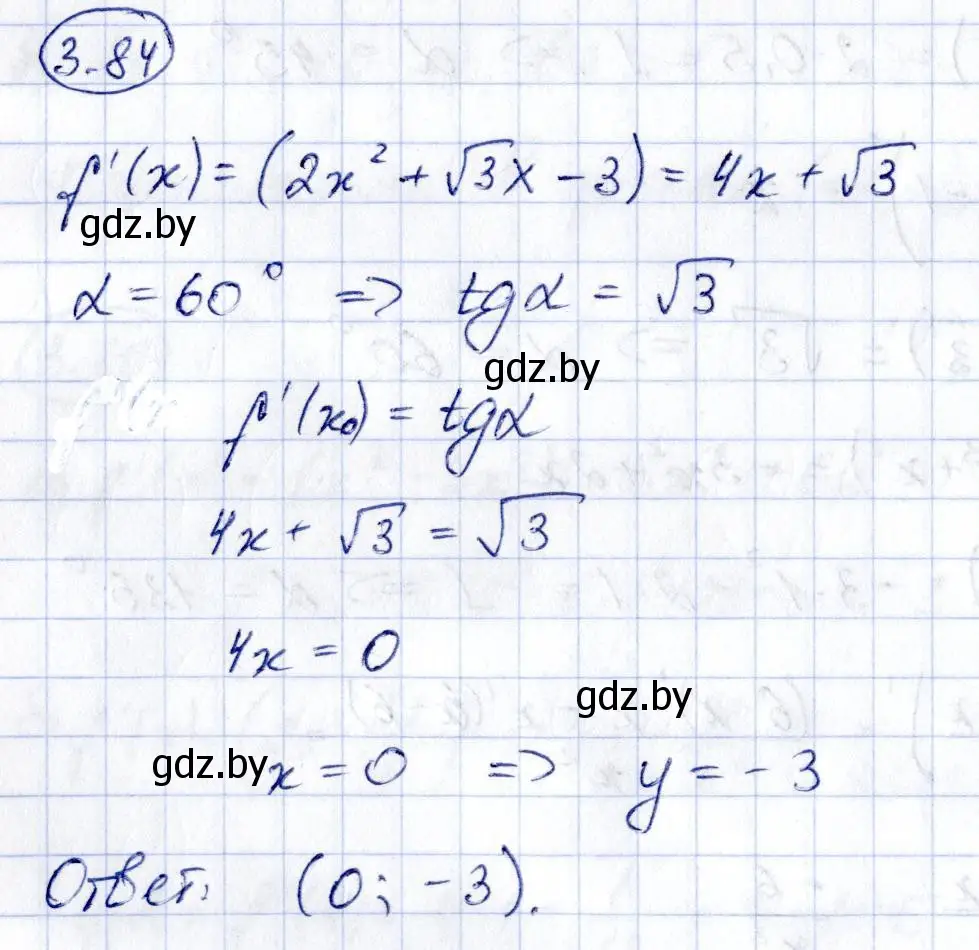 3.84
f'(x) = (2x² + √3x - 3) = 4x + √3
gdz.by
α = 60° => tgα = √3
gdz.by
f'(x₀) = tgα
4x + √3 = √3
4x = 0
gdz.by
gdz.by x = 0 => y = -3
Ответ: (0; -3).